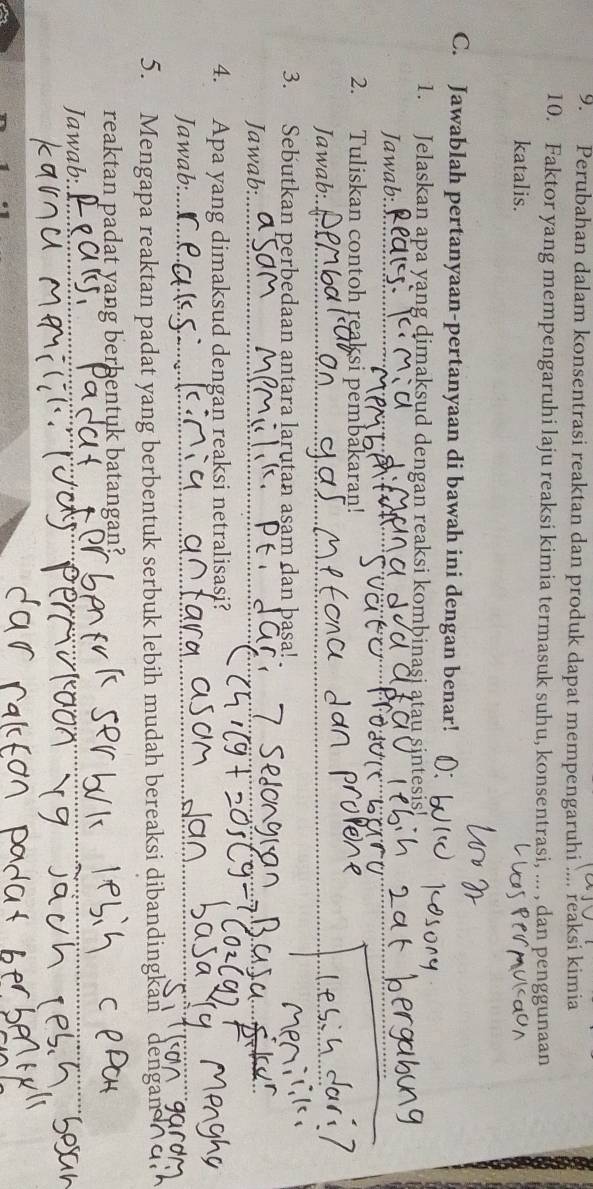 9. Perubahan dalam konsentrasi reaktan dan produk dapat mempengaruhi .... reaksi kimia
laju
10. Faktor yang mempengaruhi laju reaksi kimia termasuk suhu, konsentrasi, ... , dan penggunaan
katalis.
Luas permukaan
C. Jawablah pertanyaan-pertanyaan di bawah ini dengan benar!
1. Jelaskan apa yang dimaksud dengan reaksi kombinasi atau sintesis!
Jawab: Reaksi kimia dimana dua atau lebih zat bergabung
membentuk suatu produk baru
2. Tuliskan contoh reaksi pembakaran!
Jawab: Pembakaran gas metana dan propene
3. Sebutkan perbedaan antara larutan asam dan basa!
Jawab: asam memiliki pt. dari 7 sedangkan Basa memiliki
lebih dari 7
4. Apa yang dimaksud dengan reaksi netralisasi?
Jawab: reaksi kimia antara asam dan basa yg mengha
silkan garam
5. Mengapa reaktan padat yang berbentuk serbuk lebih mudah bereaksi dibandingkan dengan
reaktan padat yang berbentuk batangan?
Jawab: Reaksi padat terbentuk serbuk lebih cepat
karna memiliki luas permukaan yg jauh lebih besar
dar raktan padat berbentuk